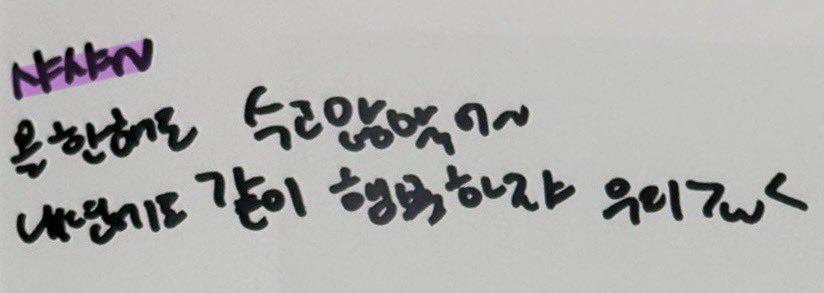 샤샤~
올한해도 수고많았어~
내년에도 같이 행복하자 우리>w<